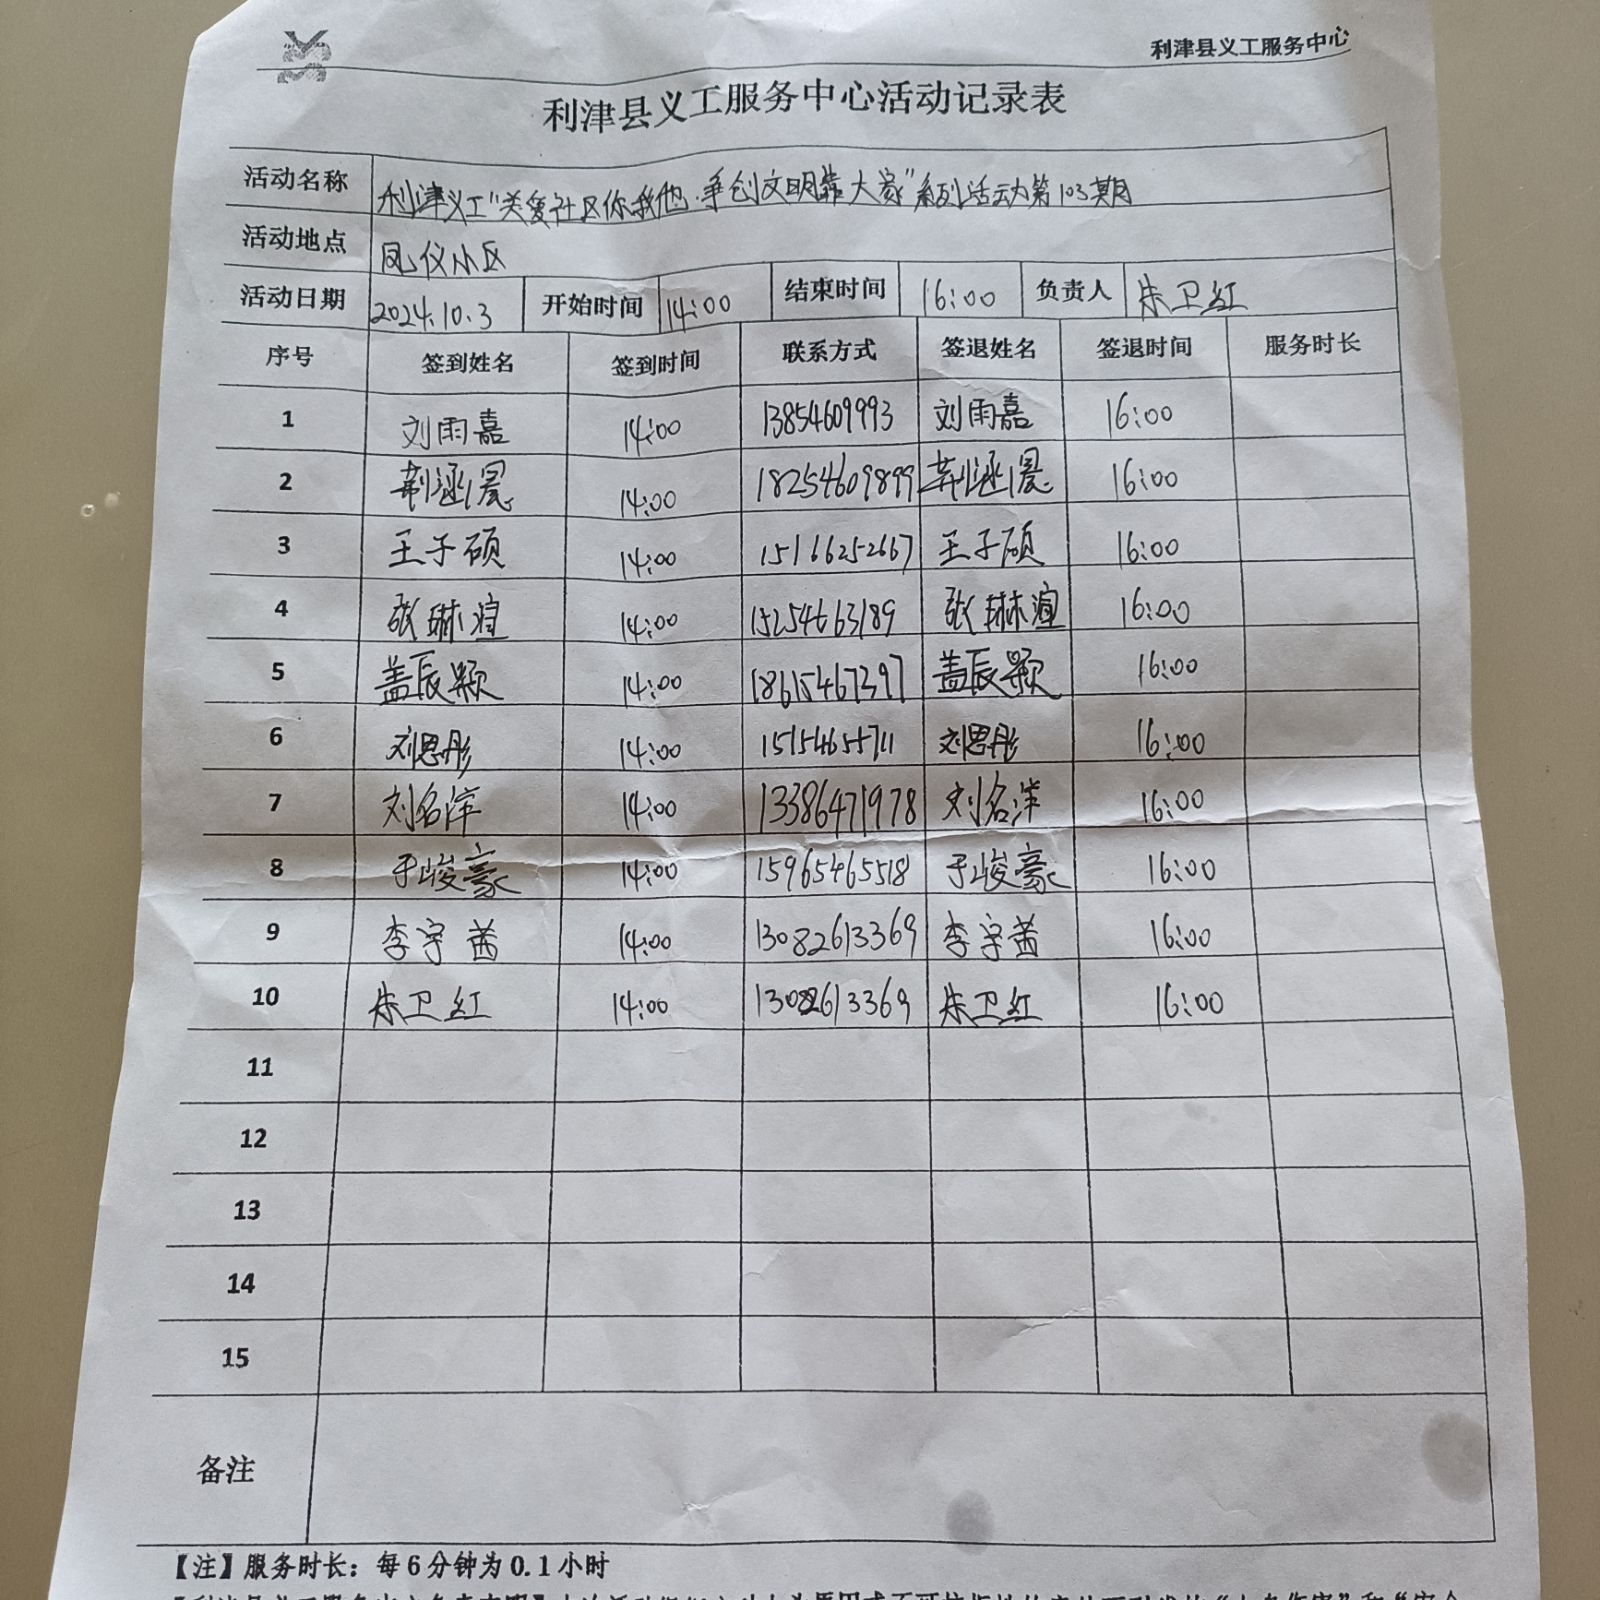 利津县义工服务中心
利津县义工服务中心活动记录表
活动名称 利津义工"关爱社区你我他·争创文明靠大家"系列活动第103期
活动地点 凤仪小区
活动日期 2024.10.3 开始时间 14:00 结束时间 16:00 负责人 朱卫红
序号 签到姓名 签到时间 联系方式 签退姓名 签退时间 服务时长
1 刘雨嘉 14:00 13854609993 刘雨嘉 16:00
2 荆涵晨 14:00 18254609899 荆涵晨 16:00
3 王子硕 14:00 15166252667 王子硕 16:00
4 张琳渲 14:00 15254663189 张琳渲 16:00
5 盖辰颢 14:00 18615467397 盖辰颢 16:00
6 刘思彤 14:00 15154655711 刘思彤 16:00
7 刘名洋 14:00 13386471978 刘名洋 16:00
8 于峻豪 14:00 15965465518 于峻豪 16:00
9 李宇茜 14:00 13082613369 李宇茜 16:00
10 朱卫红 14:00 13082613369 朱卫红 16:00
11
12
13
14
15
备注
【注】服务时长：每6分钟为0.1小时